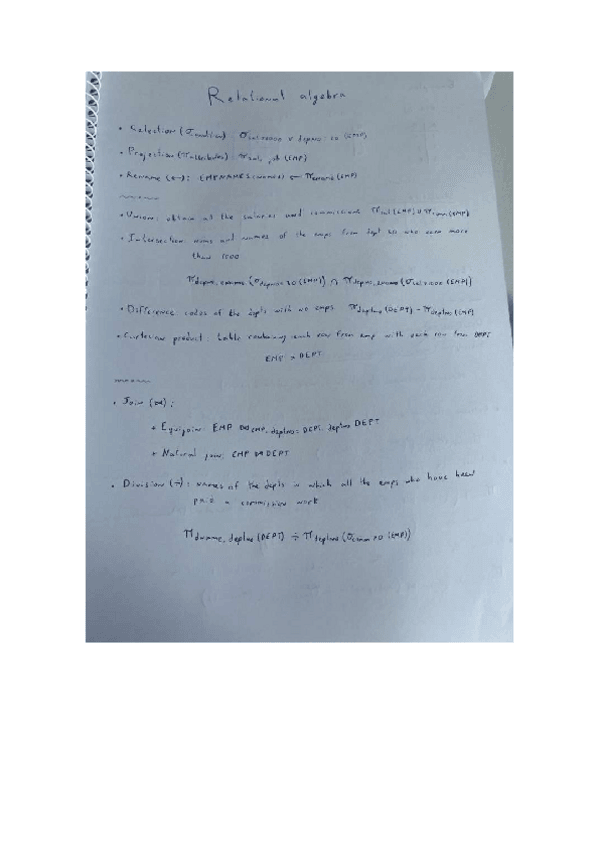 Relational algebra
• Selection (σcondition): σsal>2000 ∨ deptno=20 (EMP)
• Projection (πattributes): πsal, job (EMP)
• Rename (←): EMPNAMES(names) ← πename (EMP)
• Union: obtain all the salaries and commissions πsal (EMP) ∪ πcomm (EMP)
• Intersection: nums and names of the emps from dept 30 who earn more
than 1500
πdeptno, ename (σdeptno=30 (EMP)) ∩ πdeptno, ename (σsal>1500 (EMP))
• Difference: codes of the depts with no emps πdeptno (DEPT) - πdeptno (EMP)
• Cartesian product: table combining each row from emp with each row from DEPT
EMP × DEPT
• Join (⋈):
• Equijoin: EMP ⋈EMP.deptno = DEPT.deptno DEPT
• Natural join: EMP ⋈ DEPT
• Division (÷): names of the depts in which all the emps who have been
paid a commission work
πdname, deptno (DEPT) ÷ πdeptno (σcomm>0 (EMP))